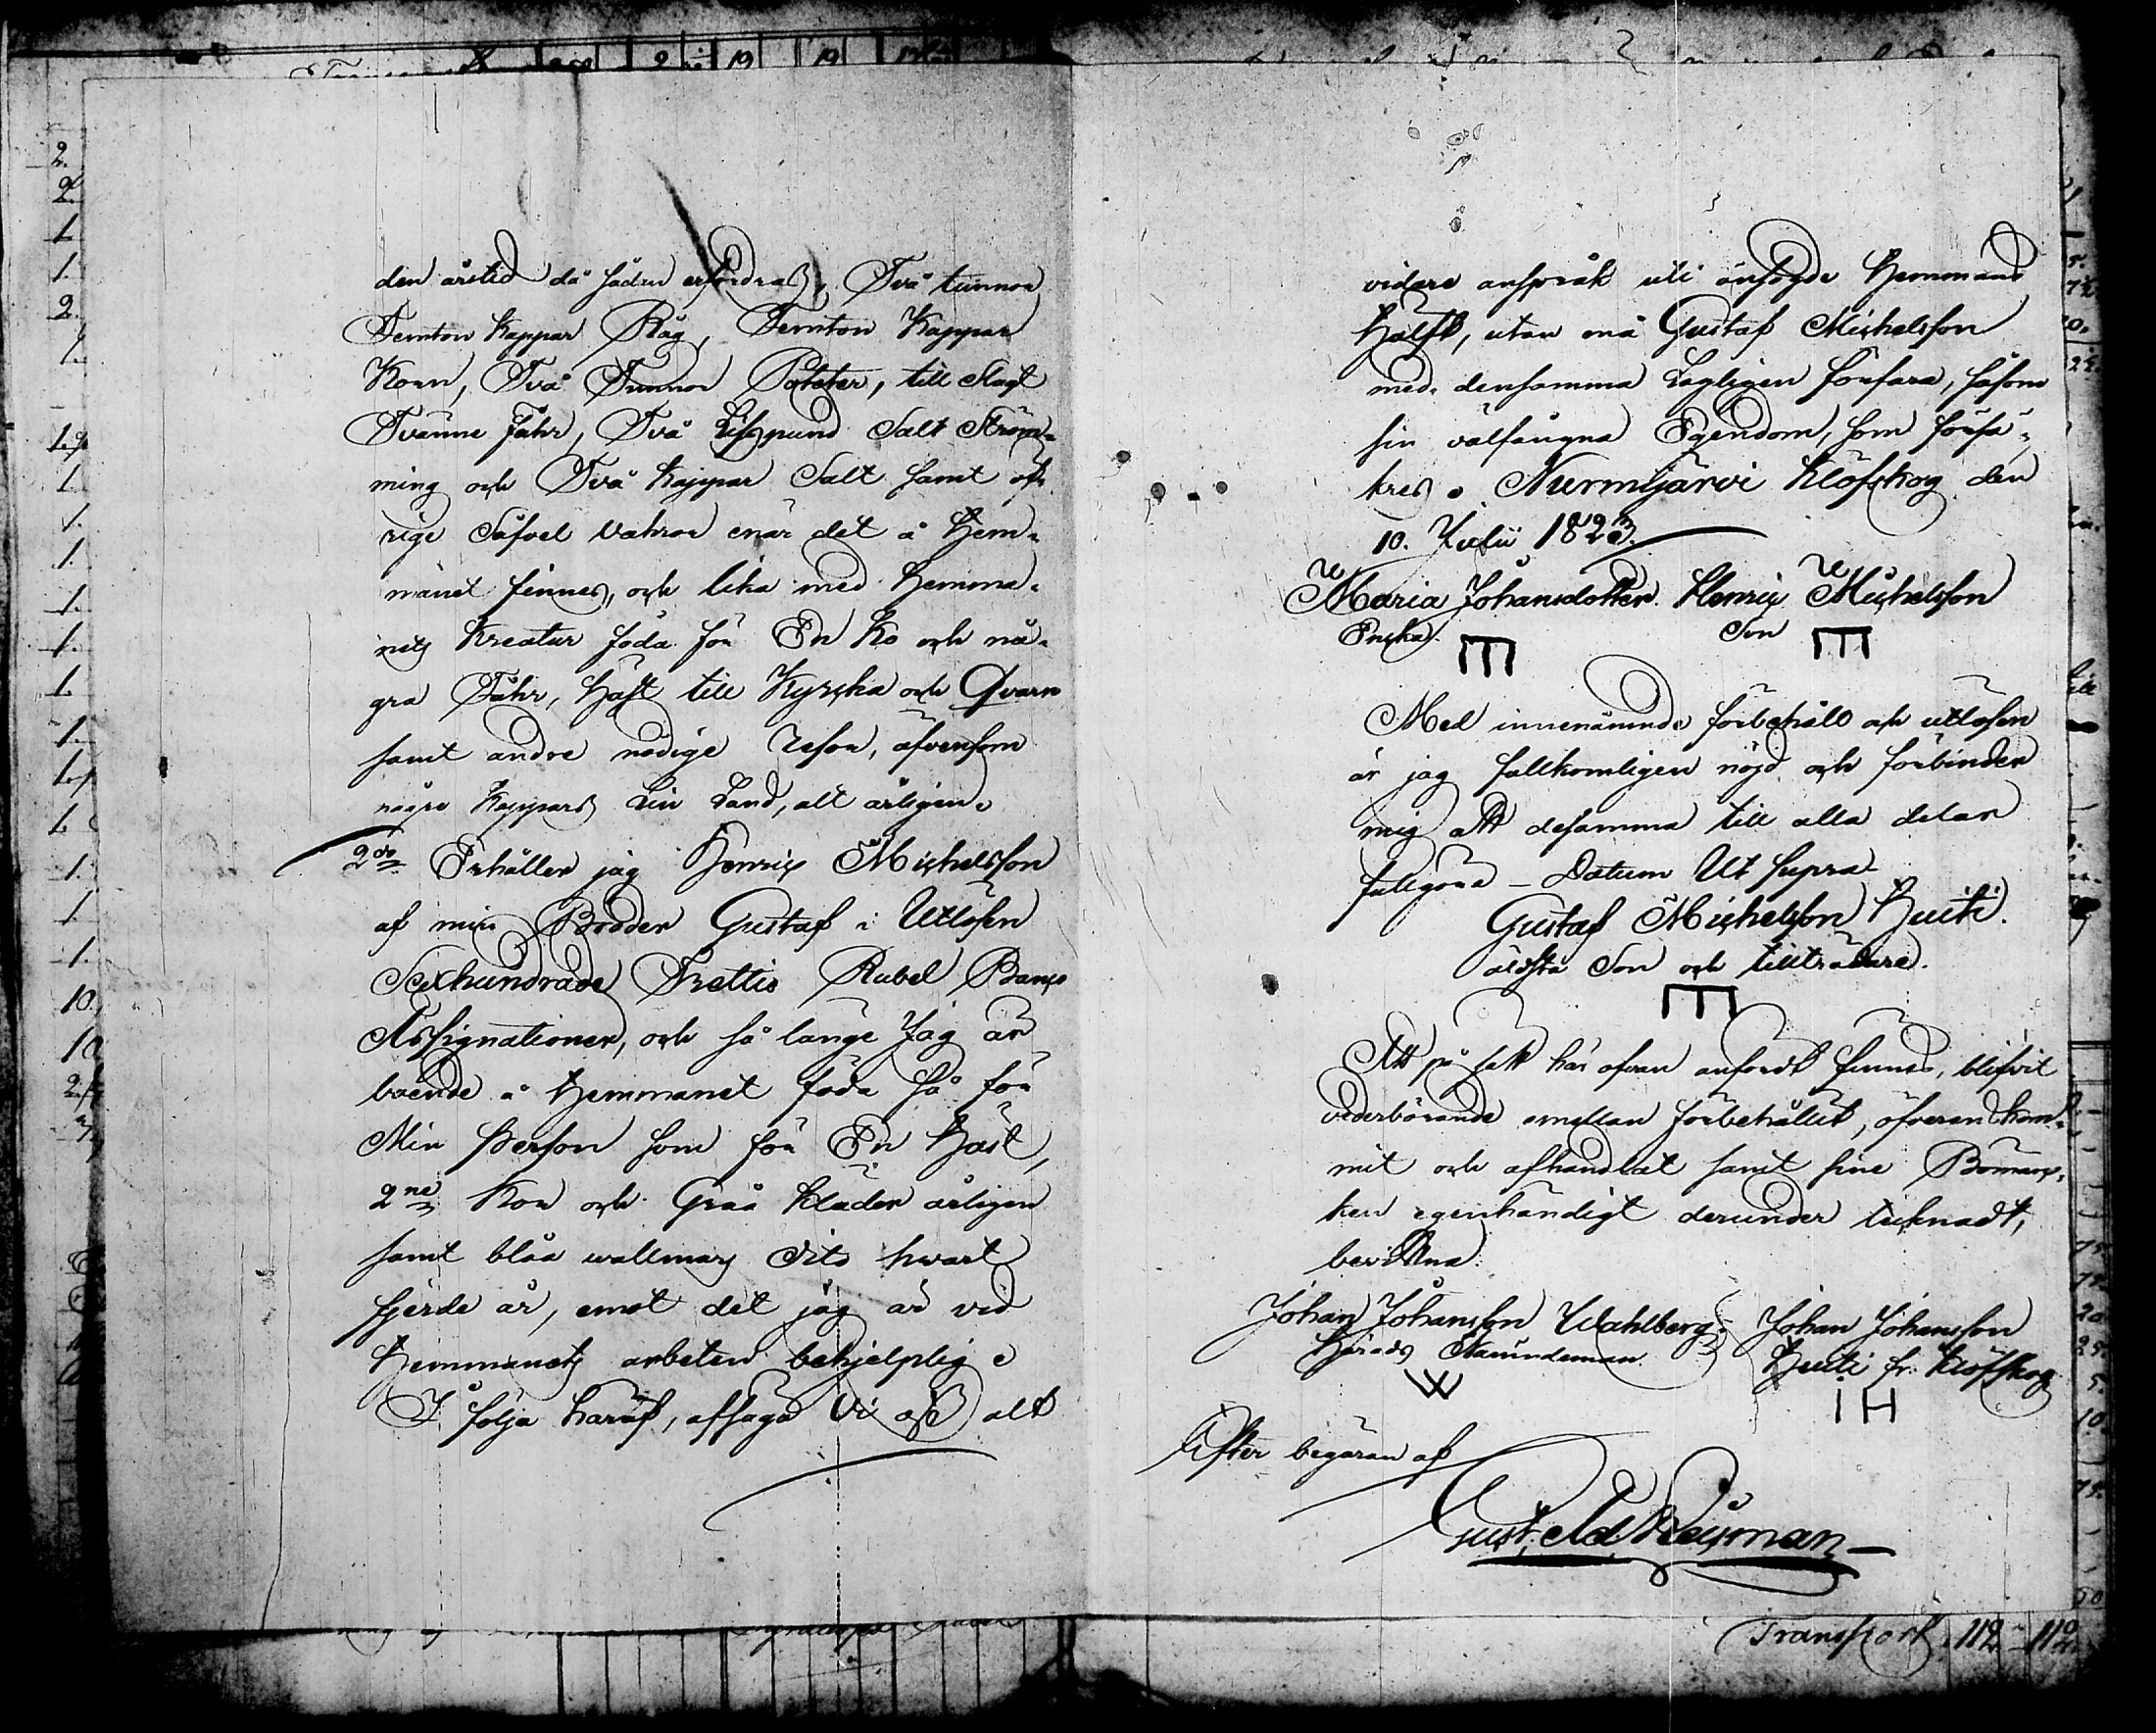 den årstid då säden erfordras, Två tunnor
Femton Kappar Råg, Femton Kappar
Korn, Två Tunnor Poteter, till Slagt
Tvänne Fåhr, Två Lispund Salt Ström-
ming och Två Kappar Salt samt öf-
rige Såfvel Vahror enär det å Hem-
manet finnes, och lika med Hemma-
nets Kreatur föda för En Ko och nå-
gra Fåhr, häst till Kyrcka och Qvarn
samt andre nödige resor, äfvensom
några Kappars Lin Land, alt årligen.
2do Erhåller jag Henric Michelsson
af min Broder Gustaf i Utlösen
Sexhundrade Trettio Rubel Banco
Assignationer, och så länge Jag är
boende å Hemmanet föda så för
Min Person som för En Häst,
2ne Kor och Gråa kläder årligen
samt blåa wallmars dito hwart
fjerde år, emot det jag är vid
Hemmanets arbeten behjelplig.
I följe häraf, afsäga Vi oss alt
vidare anspråk uti ansagde Hemmans
Hälft, utan må Gustaf Michelsson
med densamma Lagligen förfara, såsom
sin välfångna Egendom, som försä-
kres. Nurmijärvi Klöfskog den
10. Julii 1823.
Maria Johansdotter. Henric Michelsson
Encka. Son
Med innenämnde förbehåll och utlösen
är jag fullkomligen nöjd och förbinder
mig att desamma till alla delar
fullgöra – Datum Ut supra
Gustaf Michelsson Huiti.
äldsta Son och tillträdare.
Att på sätt här ofvan anfördt finnes, blifvit
vederbörande emellan förbehållit, öfverenskom-
mit och afhandlat samt sine Bomärc-
ken egenhändigt derunder tecknadt,
bevittna:
Johan Johansson Wahlberg Johan Johansson
Härads Nämndeman Huiti fr: Klöfskog
W I H
Efter begäran af
Gust. Ad.
Transport 112